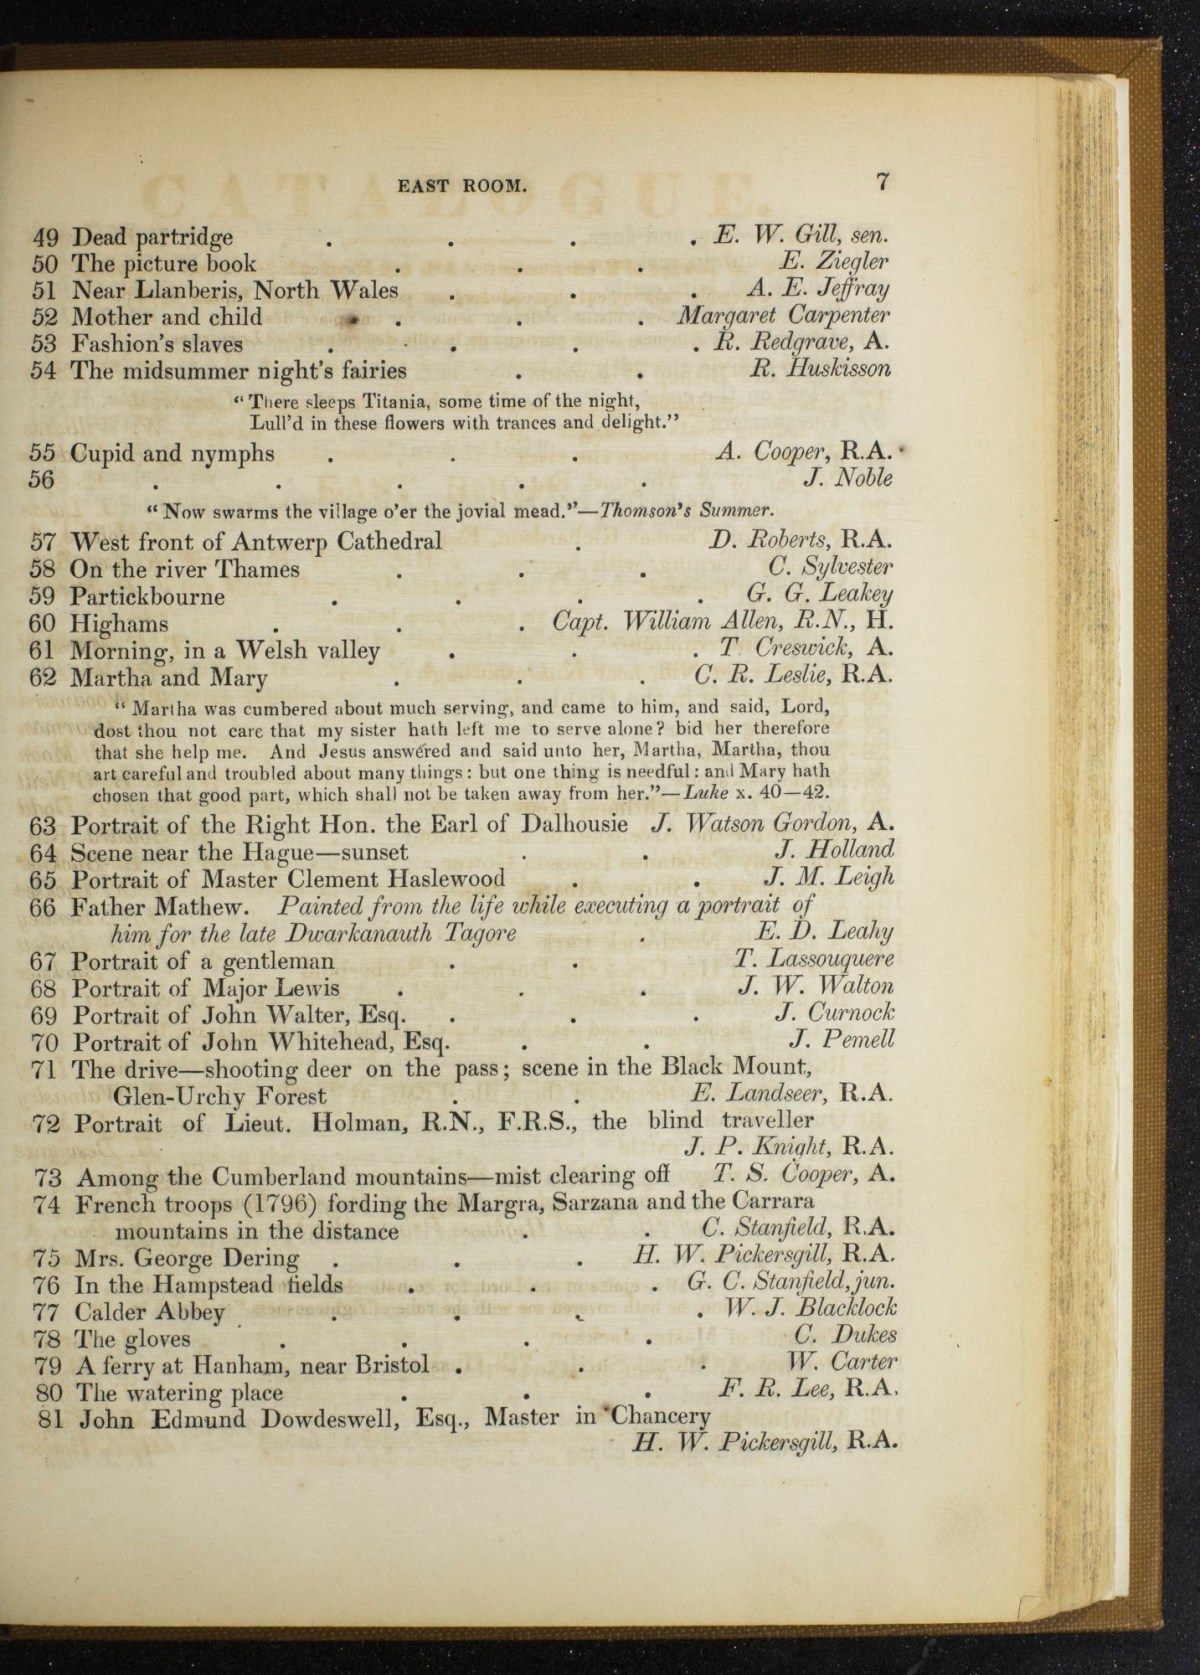 EAST ROOM. 7
49 Dead partridge . . . . E. W. Gill, sen.
50 The picture book . . . E. Ziegler
51 Near Llanberis, North Wales . . . A. E. Jeffray
52 Mother and child . . . Margaret Carpenter
53 Fashion's slaves . . . . R. Redgrave, A.
54 The midsummer night's fairies . . R. Huskisson
“There sleeps Titania, some time of the night,
Lull'd in these flowers with trances and delight.”
55 Cupid and nymphs . . . A. Cooper, R.A.
56 . . . . . J. Noble
“Now swarms the village o'er the jovial mead.”—Thomson's Summer.
57 West front of Antwerp Cathedral . D. Roberts, R.A.
58 On the river Thames . . . C. Sylvester
59 Partickbourne . . . . G. G. Leakey
60 Highams . . . Capt. William Allen, R.N., H.
61 Morning, in a Welsh valley . . . T Creswick, A.
62 Martha and Mary . . . C. R. Leslie, R.A.
“Martha was cumbered about much serving, and came to him, and said, Lord,
dost thou not care that my sister hath left me to serve alone? bid her therefore
that she help me. And Jesus answered and said unto her, Martha, Martha, thou
art careful and troubled about many things: but one thing is needful: and Mary hath
chosen that good part, which shall not be taken away from her.”—Luke x. 40—42.
63 Portrait of the Right Hon. the Earl of Dalhousie J. Watson Gordon, A.
64 Scene near the Hague—sunset . . J. Holland
65 Portrait of Master Clement Haslewood . . J. M. Leigh
66 Father Mathew. Painted from the life while executing a portrait of
him for the late Dwarkanauth Tagore . E. D. Leahy
67 Portrait of a gentleman . . T. Lassouquere
68 Portrait of Major Lewis . . . J. W. Walton
69 Portrait of John Walter, Esq. . . . J. Curnock
70 Portrait of John Whitehead, Esq. . . J. Pemell
71 The drive—shooting deer on the pass; scene in the Black Mount,
Glen-Urchy Forest . . E. Landseer, R.A.
72 Portrait of Lieut. Holman, R.N., F.R.S., the blind traveller
J. P. Knight, R.A.
73 Among the Cumberland mountains—mist clearing off T. S. Cooper, A.
74 French troops (1796) fording the Margra, Sarzana and the Carrara
mountains in the distance . . C. Stanfield, R.A.
75 Mrs. George Dering . . . H. W. Pickersgill, R.A.
76 In the Hampstead fields . . . G. C. Stanfield, jun.
77 Calder Abbey . . . . W. J. Blacklock
78 The gloves . . . . C. Dukes
79 A ferry at Hanham, near Bristol . . . W. Carter
80 The watering place . . . F. R. Lee, R.A.
81 John Edmund Dowdeswell, Esq., Master in Chancery
H. W. Pickersgill, R.A.